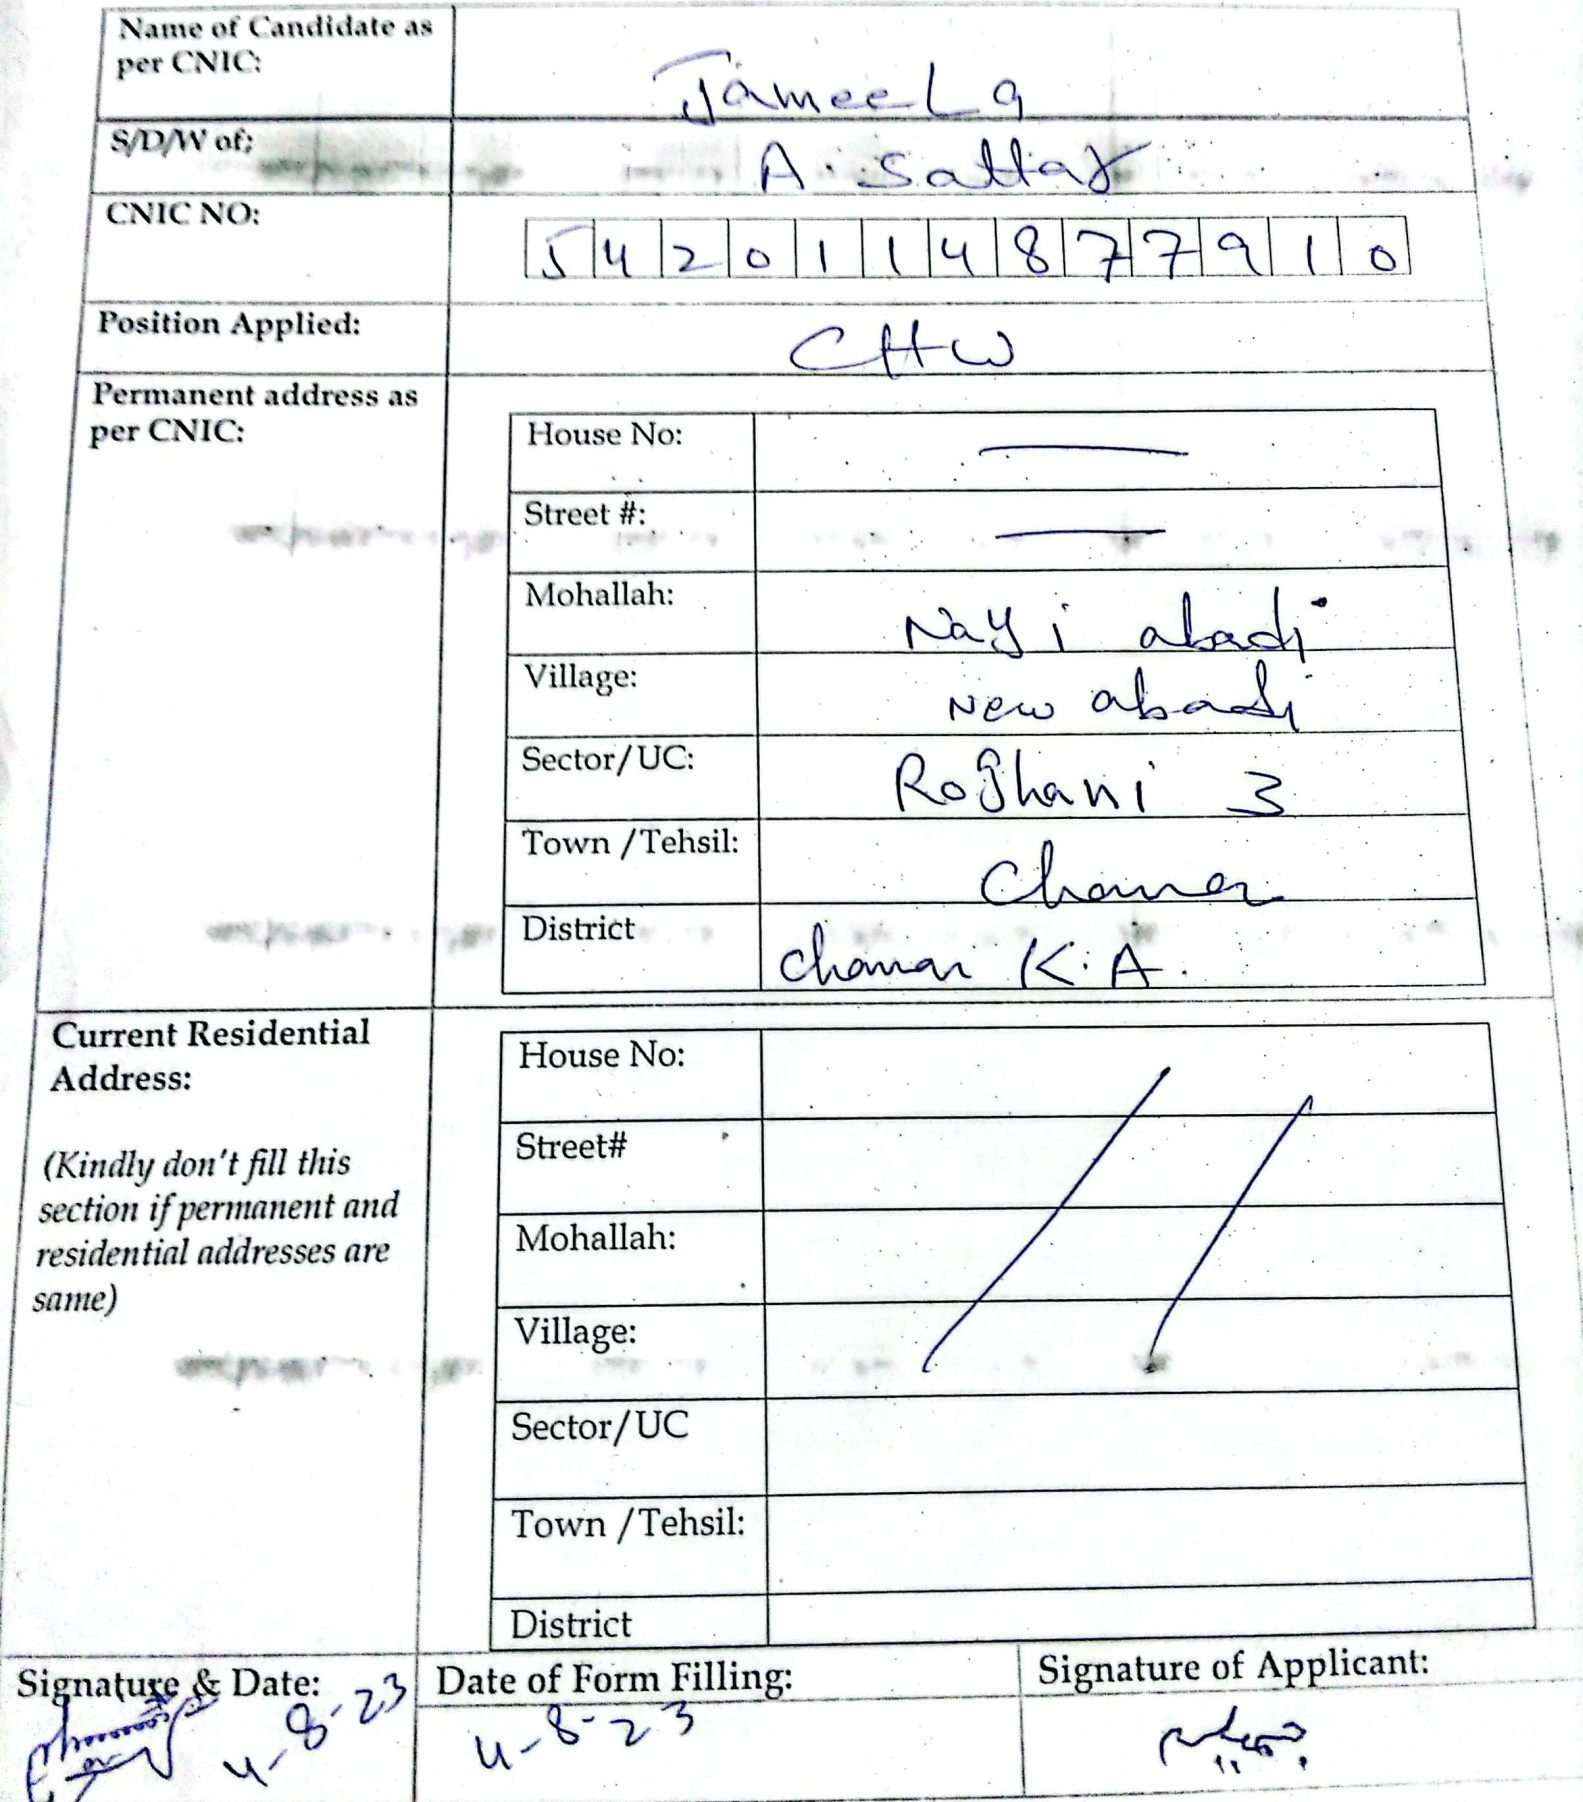 Name of Candidate as per CNIC: Jameela
S/D/W of: A. Sattar
CNIC NO: 5420114877910
Position Applied: CHW
Permanent address as per CNIC:
House No: —
Street #: —
Mohallah: Nayi abadi
Village: New abadi
Sector/UC: Roghani 3
Town /Tehsil: Chaman
District Chaman K.A.
Current Residential Address:
(Kindly don't fill this section if permanent and residential addresses are same)
House No:
Street#
Mohallah:
Village:
Sector/UC
Town /Tehsil:
District
Signature & Date: 4-8-23
Date of Form Filling: 4-8-23
Signature of Applicant: